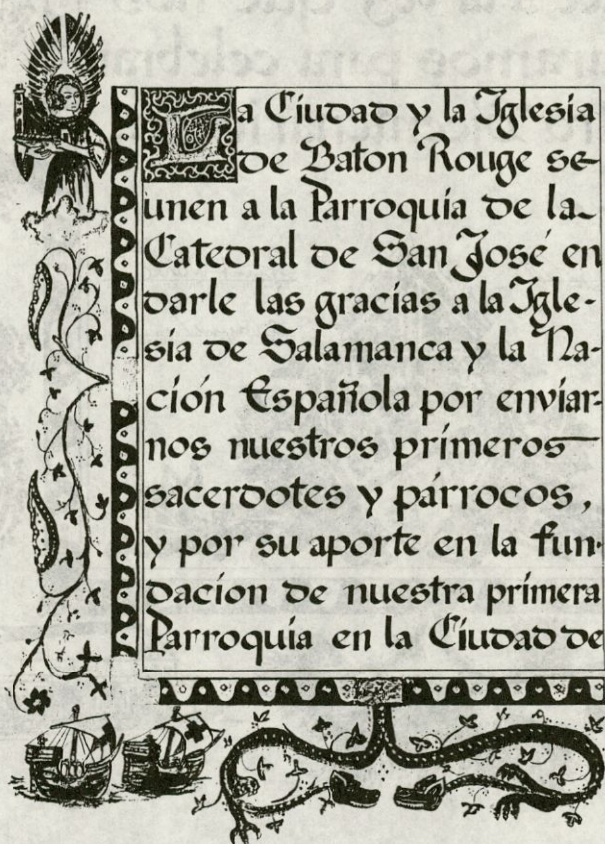 La Ciudad y la Iglesia
de Baton Rouge se
unen a la Parroquia de la
Catedral de San José en
darle las gracias a la Igle-
sia de Salamanca y la Na-
ción Española por enviar-
nos nuestros primeros
sacerdotes y párrocos,
y por su aporte en la fun-
dacion de nuestra primera
Parroquia en la Ciudad de